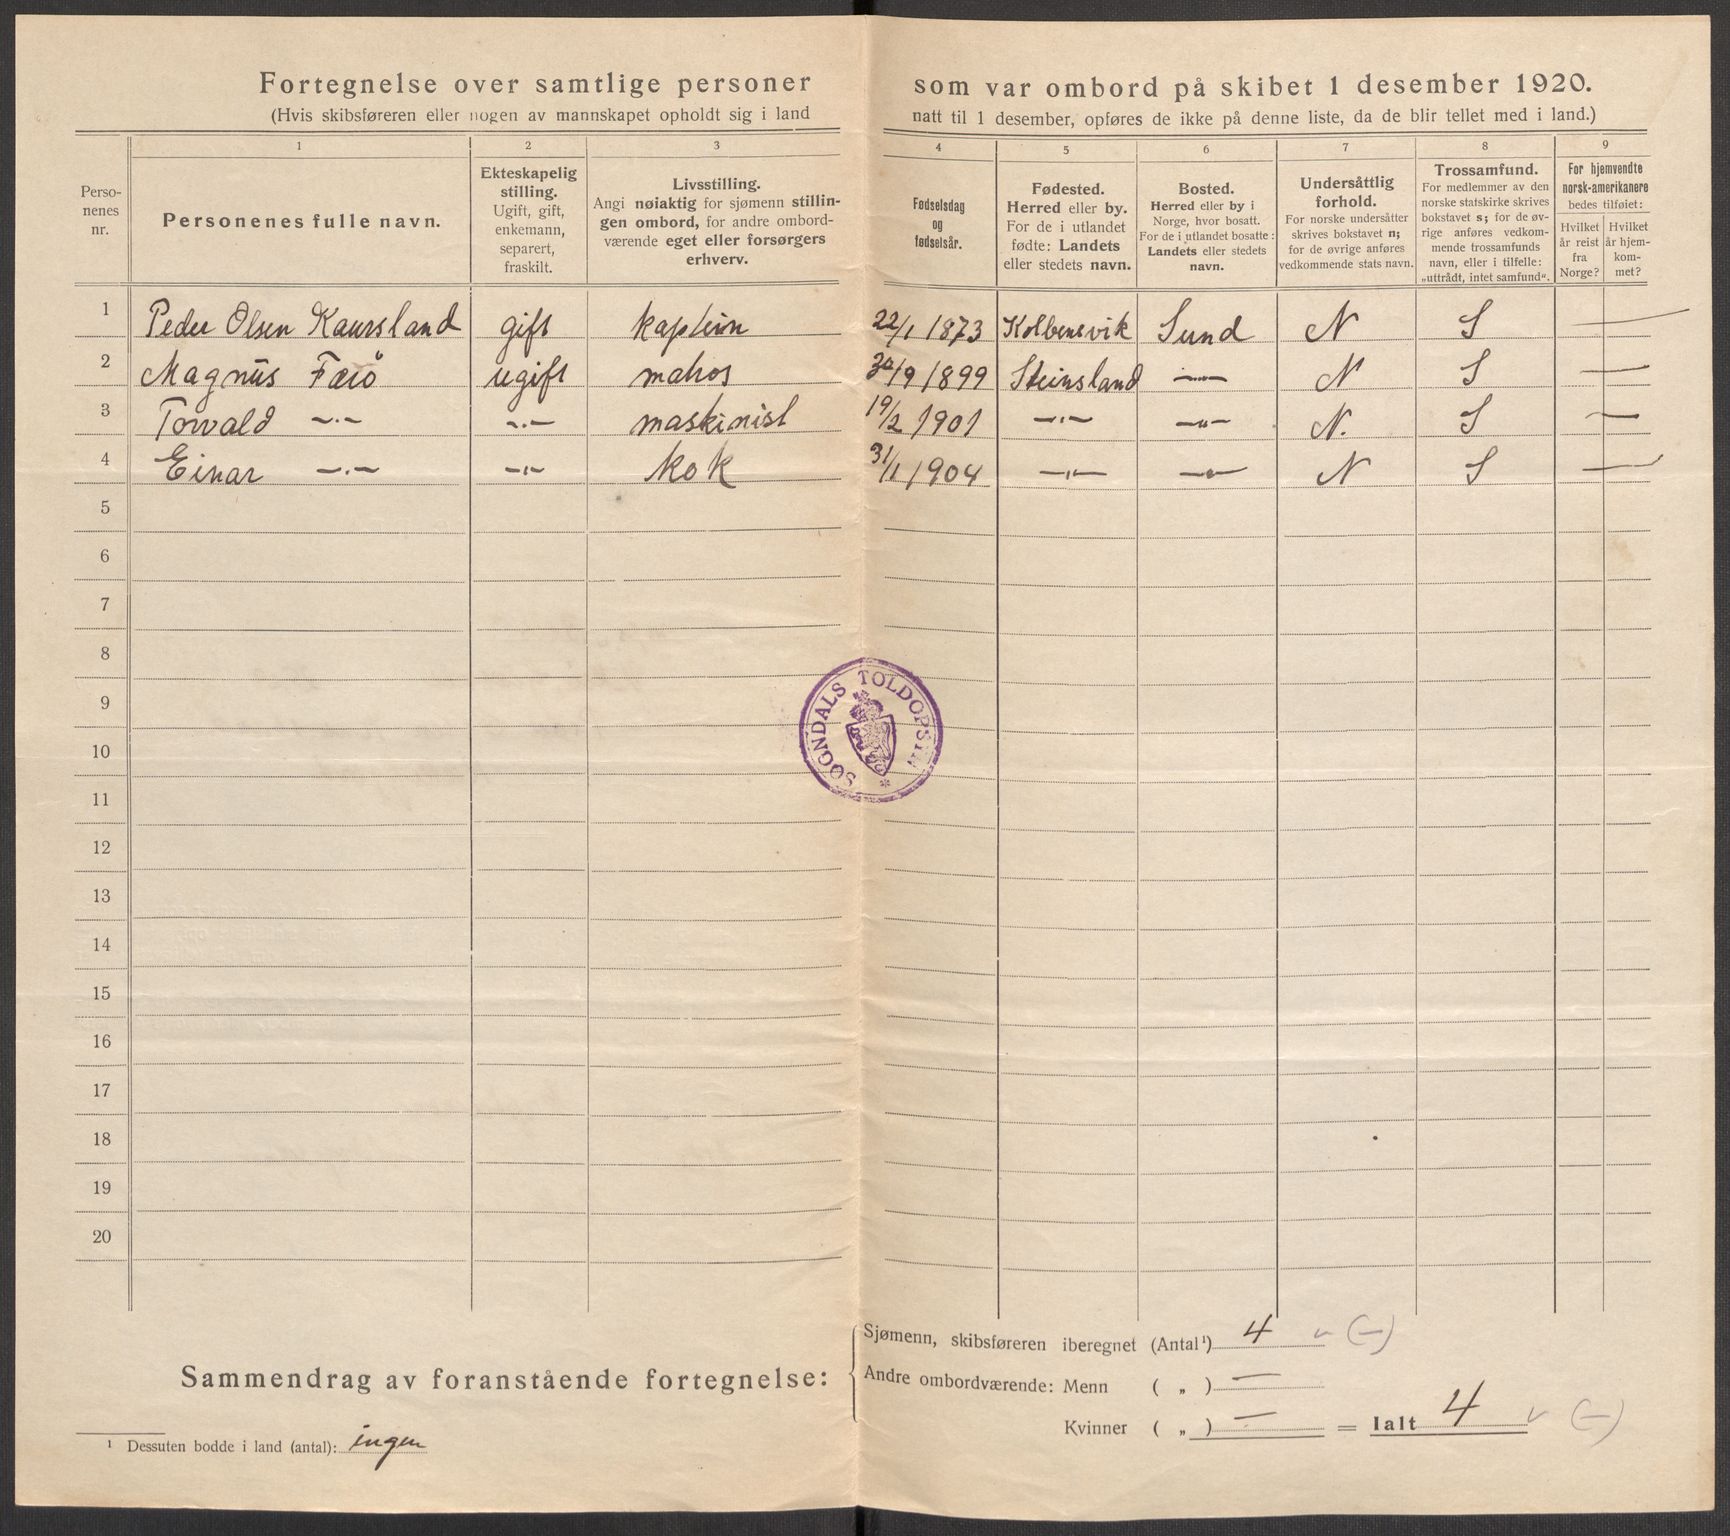 Fortegnelse over samtlige personer som var ombord på skibet 1 desember 1920.
(Hvis skibsføreren eller nogen av mannskapet opholdt sig i land natt til 1 desember, opføres de ikke på denne liste, da de blir tellet med i land.)
1 2 3 4 5 6 7 8 9
Perso-
nenes
nr.
Personenes fulle navn.
Ekteskapelig
stilling.
Ugift, gift,
enkemann,
separert,
fraskilt.
Livsstilling.
Angi nøiaktig for sjømenn stillin-
gen ombord, for andre ombord-
værende eget eller forsørgers
erhverv.
Fødselsdag
og
fødselsår.
Fødested.
Herred eller by.
For de i utlandet
fødte: Landets
eller stedets navn.
Bosted.
Herred eller by i
Norge, hvor bosatt.
For de i utlandet bosatte:
Landets eller stedets
navn.
Undersåttlig
forhold.
For norske undersåtter
skrives bokstavet n;
for de øvrige anføres
vedkommende stats navn.
Trossamfund.
For medlemmer av den
norske statskirke skrives
bokstavet s; for de øv-
rige anføres vedkom-
mende trossamfunds
navn, eller i tilfelle:
„uttrådt, intet samfund“.
For hjemvendte
norsk-amerikanere
bedes tilføiet:
Hvilket
år reist
fra
Norge?
Hvilket
år hjem-
kom-
met?
1 Peder Olsen Kaursland gift kaptein 22/1 1873 Kolbensvik Sund N S —
2 Magnus Færö ugift matros 30/9 1899 Steinsland —"— N S —
3 Torvald —"— —"— maskinist 19/2 1901 —"— —"— N. S —
4 Einar —"— —"— kok 31/1 1904 —"— —"— N S —
5
6
7
8
9
10
11
12
13
14
15
16
17
18
19
20
SOGNDALS TOLDOPSYN *
Sammendrag av foranstående fortegnelse:
Sjømenn, skibsføreren iberegnet (Antal¹) 4 v (—)
Andre ombordværende: Menn ( „ ) —
Kvinner ( „ ) — = Ialt 4 v (—)
¹ Dessuten bodde i land (antal): ingen